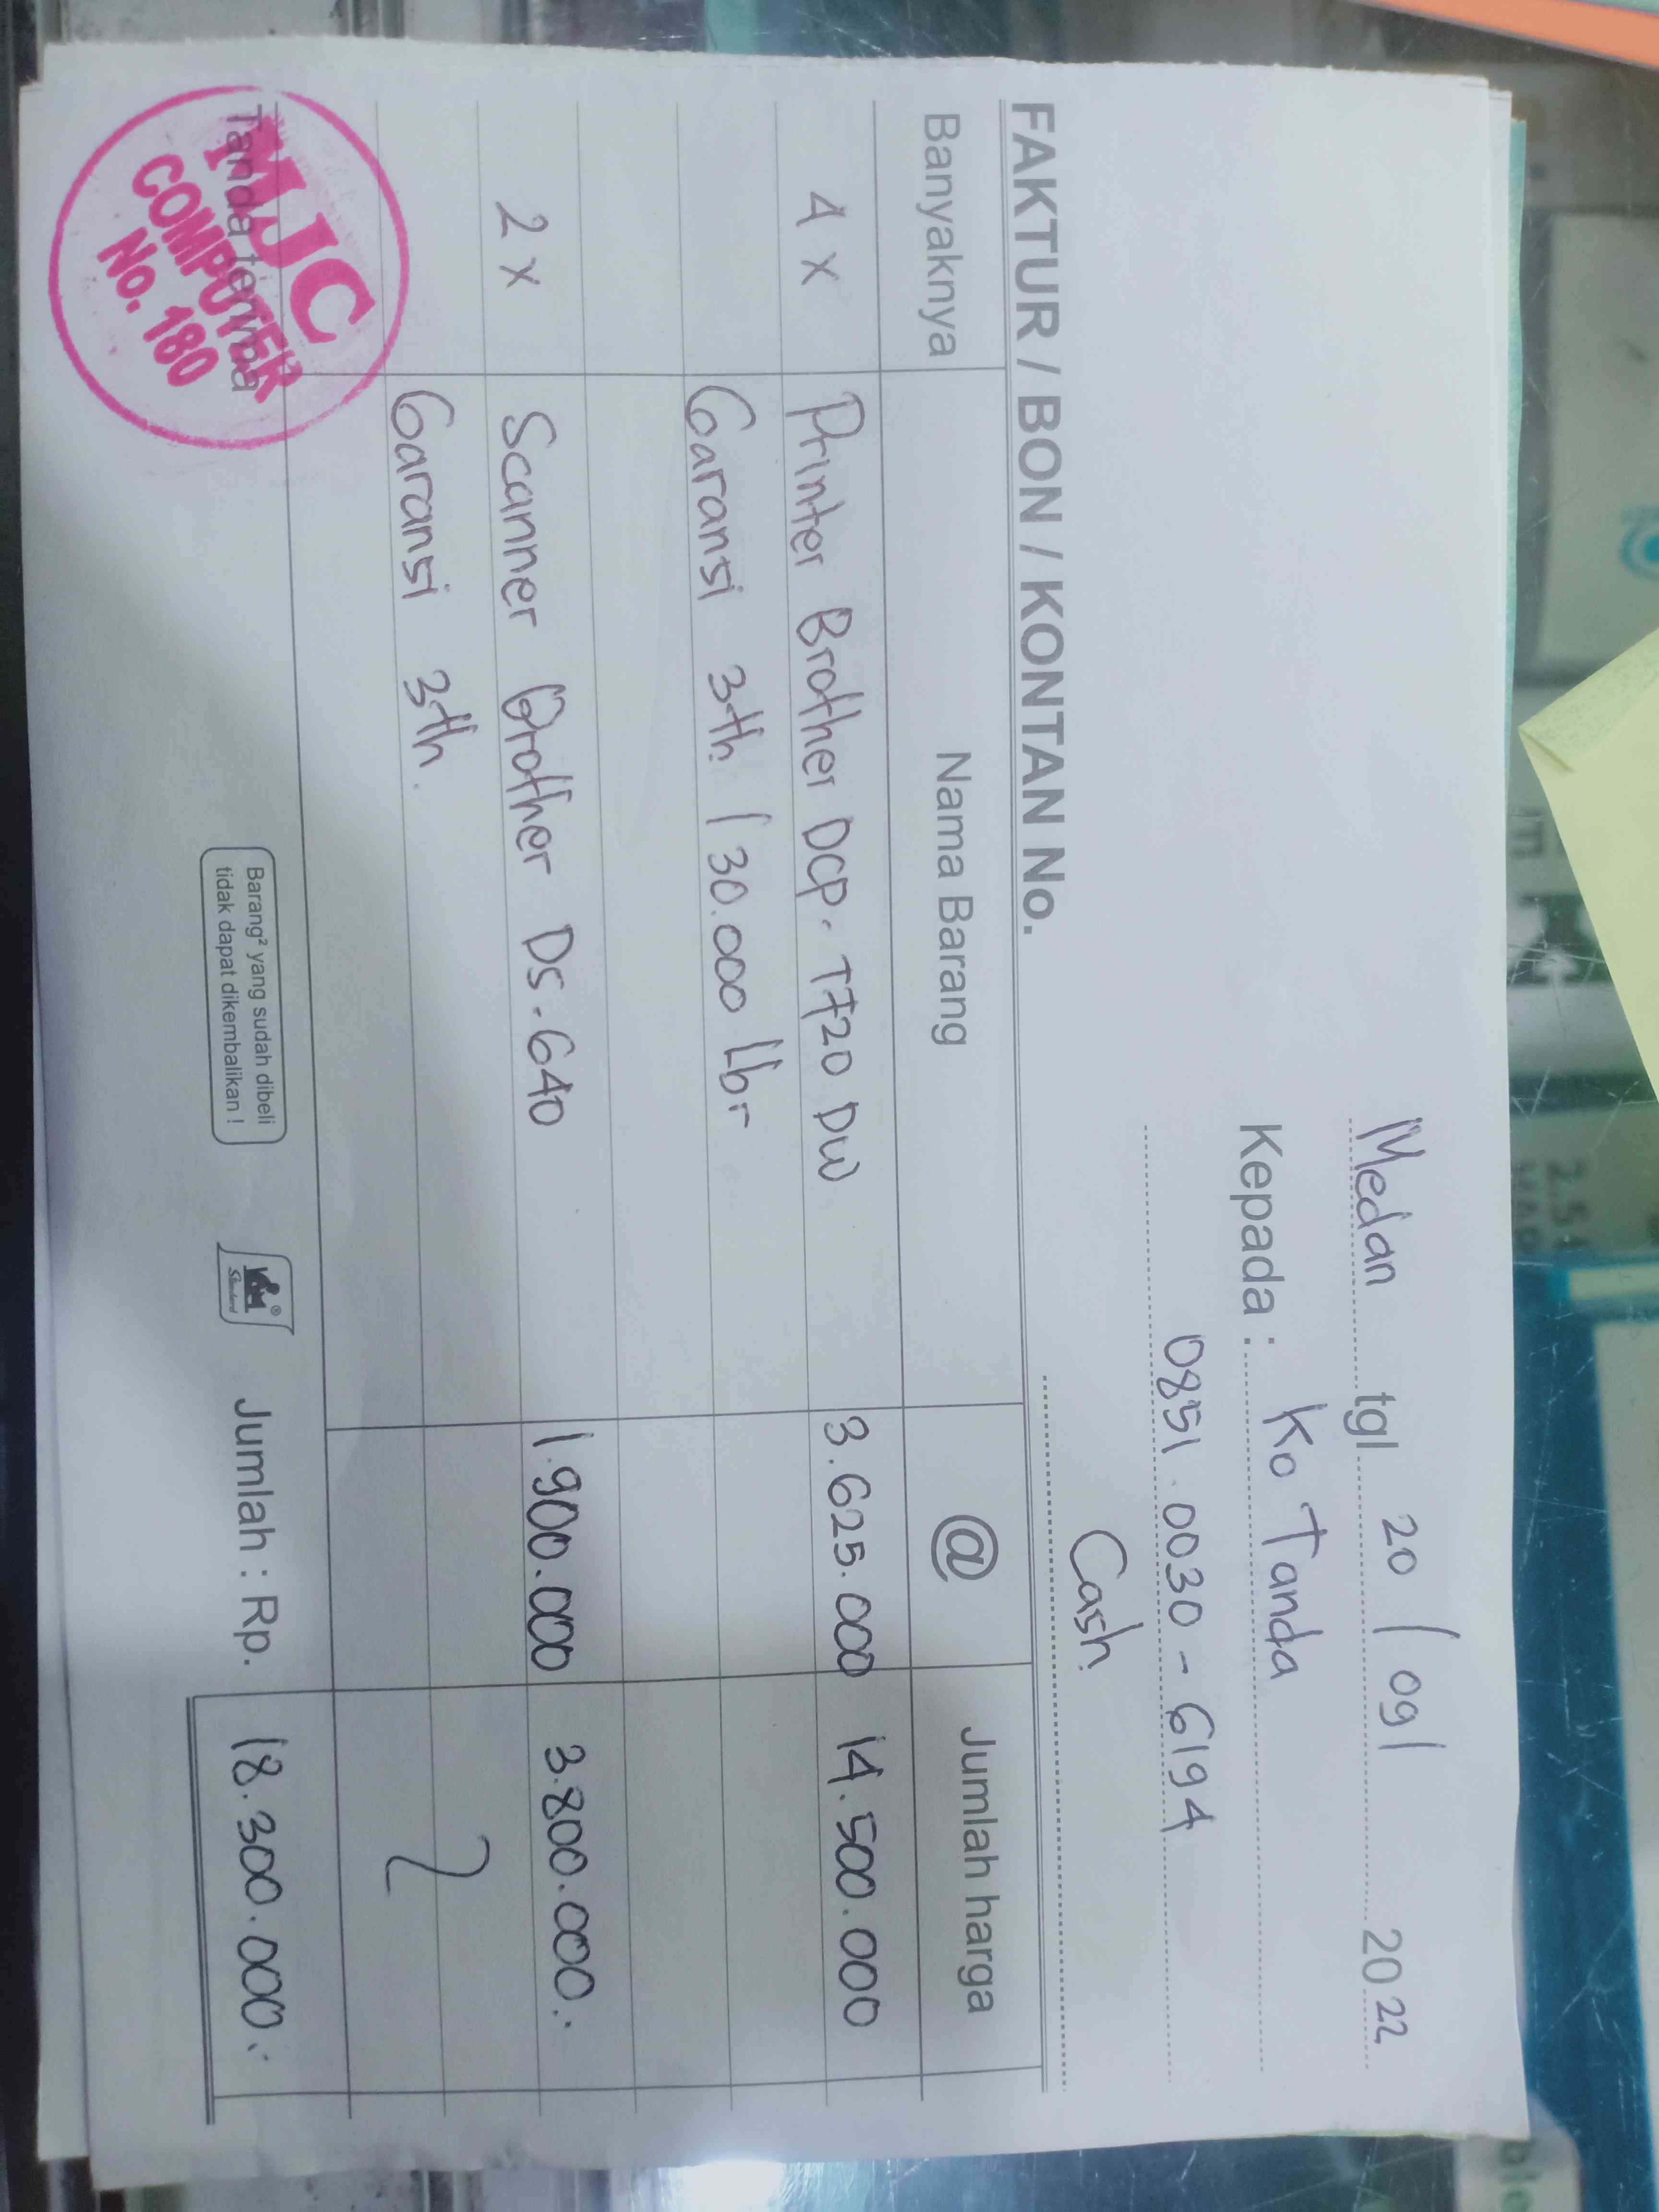 Medan tgl 20 / 09 / 2022
Kepada : Ko Tanda
0851.0030-6194
Cash.
FAKTUR / BON / KONTAN No.
Banyaknya Nama Barang @ Jumlah harga
4 x Printer Brother DCP-T720 DW 3.625.000 14.500.000
Garansi 3th / 30.000 Lbr
2 x Scanner Brother DS-640 1.900.000 3.800.000.
Garansi 3th.
Tanda terima
MJC
COMPUTER
No. 180
Barang² yang sudah dibeli
tidak dapat dikembalikan !
Standard
Jumlah : Rp. 18.300.000.